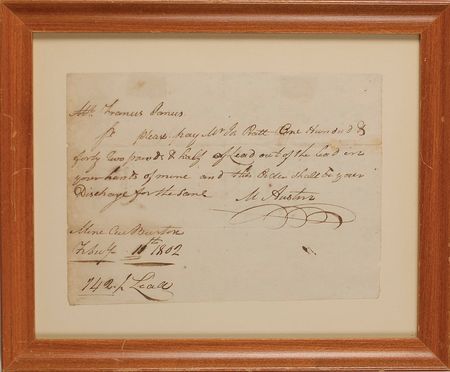 Mr Francis Janus
Sr please pay Mr Jo Pratt One Hundrd &
forty two pounds & half of Lead out of the Lead in
your hands of mine and this Order shall be your
Discharge for the same
M Austin
Mine Burton
Feby 11th 1802
142½ Lead